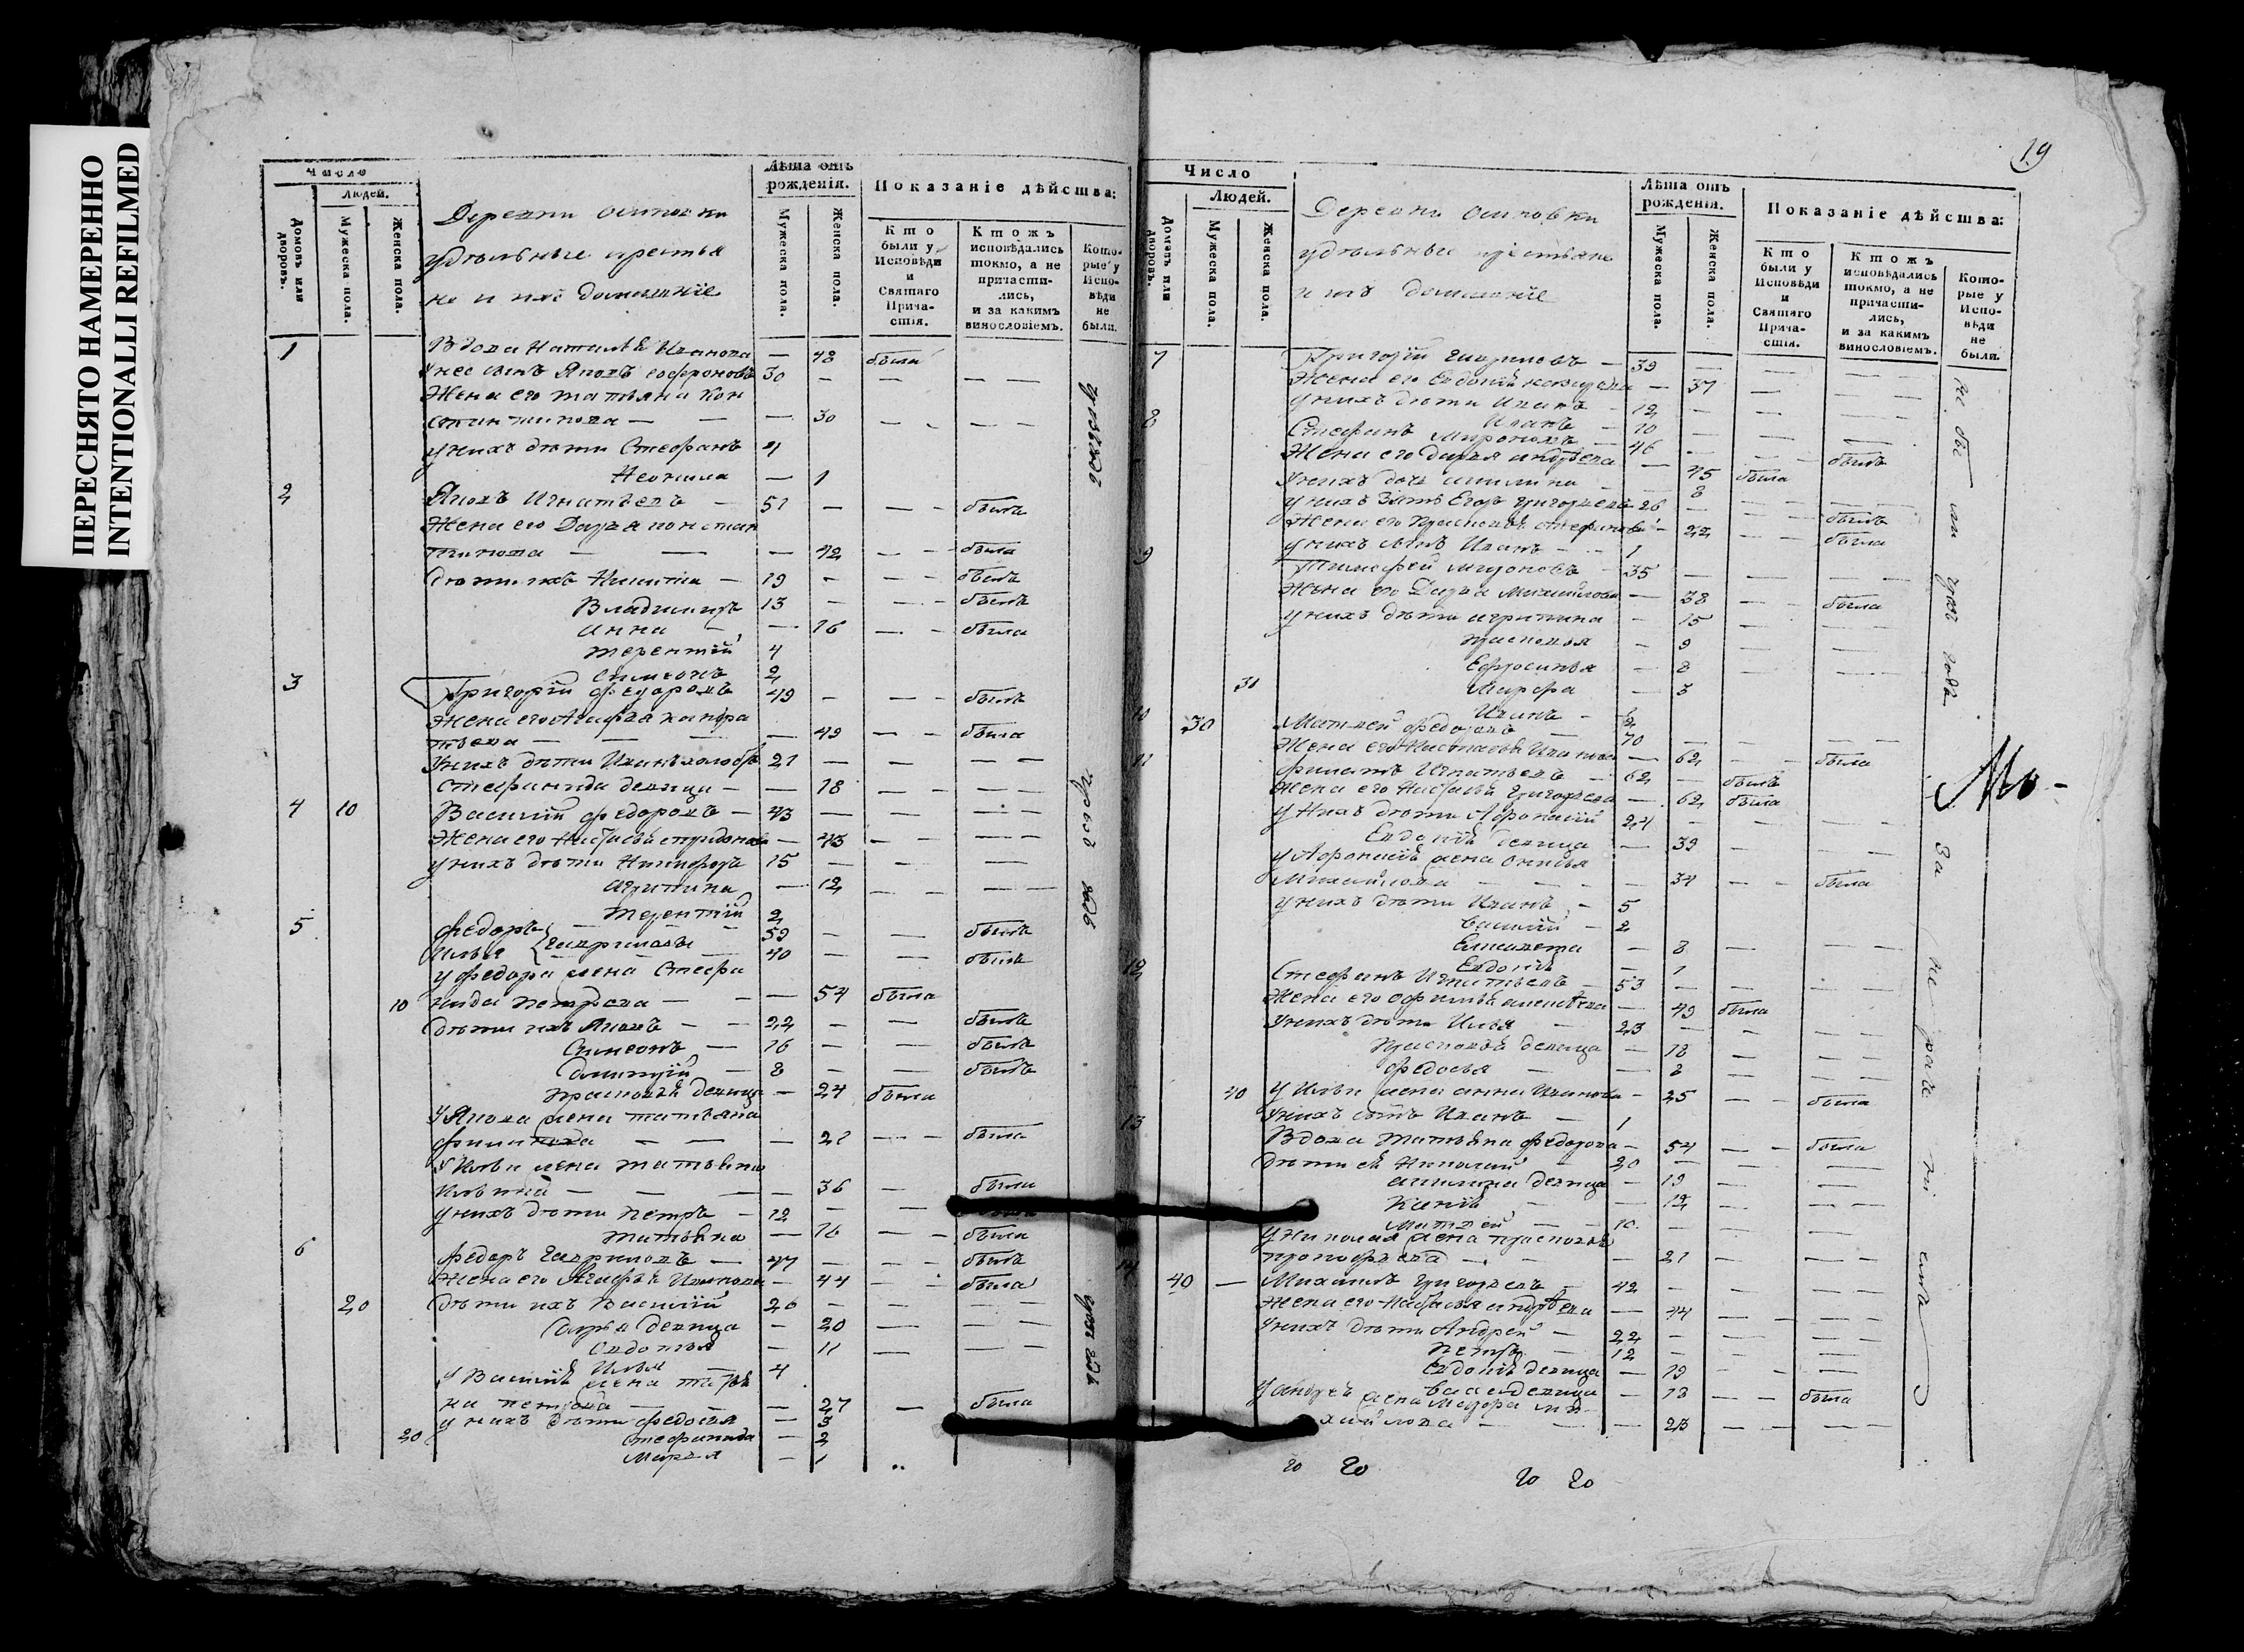 ПЕРЕСНЯТО НАМЕРЕННО
INTENTIONALLI REFILMED
Число
Людей.
Домовъ или дворовъ.
Мужеска пола.
Женска пола.
Деревни Осиновки
удѣльные крестья
не и ихъ домашніе
Лѣта отъ рожденія.
Мужеска пола.
Женска пола.
Показаніе дѣйства:
Кто были у Исповѣди и Святаго Причастія.
Ктожъ исповѣдались токмо, а не причастились, и за какимъ винословіемъ.
Которые у Исповѣди не были.
1 Вдова Наталья Иванова — 48 была
У нее сынъ Яковъ Софроновъ 30 — — — —
Жена его Татьяна Кон
стантинова — — — 30 — — — —
у нихъ дѣти Стефанъ 4
Неонила — 1
2 Яковъ Игнатьевъ — 51 — — — былъ
Жена его Дарья Констан
тинова — — — 42 — — была
Дѣти ихъ Никита — 19 — — — былъ
Владимиръ 13 — — — былъ
Анна — — 16 — — была
Терентій 4
Симеонъ 2
3 Григорій Федоровъ 49 — — — былъ
Жена его Агафья Кондра
тьева — — — 49 — — была
У нихъ дѣти Иванъ 21 — — — — —
Стефанида девица — — 18 — — — —
4 10 Василій Федоровъ — 43 — — — —
Жена его Настасья Спиридонова — 43 — — — —
у нихъ дѣти Никифоръ 15 — — — —
Агрипина — 12 — — — —
Терентій 2
5 Федоръ — 59 — — былъ
Илья { Гавриловы — 40 — — былъ
у Федора жена Стефа
10 нида Петрова — — — 54 была
Дѣти ихъ Яковъ — — 22 — — былъ
Симеонъ — 16 — — былъ
Дмитрій — 8 — — былъ
Прасковья девица — 24 была
У Якова жена Татьяна
— — — 21 — — была
У Ильи жена Татьяна
Ильина — — — — 36 — была
у нихъ дѣти Петръ — 12 — —
Татьяна — 16 — — была
6 Федоръ Гавриловъ — 47 — — — былъ
Жена его Агафья Иванова — 44 — — была
20 Дѣти ихъ Василій 26 — — — —
Дарья девица — 20 — — —
Евдотья — 11 — — —
Илья — 4
У Василья жена Татья
на Петрова — — — 27 — была
у нихъ дѣти Федосья — 3
20 Стефанида — 2
Марья — 1
19
Число
Людей.
Домовъ или дворовъ.
Мужеска пола.
Женска пола.
Деревни Осиновки
удѣльные крестьяне
и ихъ домашніе
Лѣта отъ рожденія.
Мужеска пола.
Женска пола.
Показаніе дѣйства:
Кто были у Исповѣди и Святаго Причастія.
Ктожъ исповѣдались токмо, а не причастились, и за какимъ винословіемъ.
Которые у Исповѣди не были.
7 Григорій Гавриловъ — 39 — — —
Жена его Евдокія — 37 — —
У нихъ дѣти Иванъ — 12 — — —
Иванъ — 10 — — —
8 Стефанъ Мироновъ — 46 — — — былъ
Жена его Дарья Андреева — 45 была
У нихъ дочь Акилина — — 8
у нихъ зять Егоръ Григорьевъ 26 — — — былъ
Жена его Прасковья Стефанова — 22 — — была
у нихъ сынъ Иванъ — — 1
9 Тимофей Мироновъ 35 — — — —
Жена его Дарья Михайлова — 38 — — была
у нихъ дѣти Агрипина — 15 —
Прасковья — 9 — —
Ефросинья — 8 — —
31 Марфа — 3
Иванъ — 2
10 30 Матвей Федоровъ — 70 — — — —
Жена его Настасья Иванова — 62 — — была
11 Филатъ Игнатьевъ — 62 — былъ
Жена его Настасья Григорьева — 62 была
у нихъ дѣти Афонасій 24 — — — —
Евдокія девица — 39 — — —
у Афонасья жена
Михайлова — — — 34 — — была
у нихъ дѣти Иванъ — 5
Василій — 2
Елисавета — 8 — — —
Евдокія — 1
12 Стефанъ Игнатьевъ — 53 — — —
Жена его Офимья Алексѣева — 49 была
У нихъ дѣти Илья — 23 — — — —
Прасковья девица — 18 — — —
Федосья — — 2 — — —
40 У Ильи жена Анна Иванова — 25 — — была
У нихъ сынъ Иванъ — 1
13 Вдова Татьяна Федорова — 54 — — была
Дѣти ея Николай — 20 — — —
Акилина девица — 19 — —
Ксенія — — 12 — — —
Матвей — — 10 — — —
У Николая жена Прасковья
Прокофьева — — — 21 — — —
14 40 — Михаилъ Григорьевъ — 42 — — — —
Жена его Настасья Андрѣева — 44 — — — —
У нихъ дѣти Андрей — 22 — — — —
Петръ — 12 — — —
Евдокія девица — 19 —
Васса девица — 18 — — была
У Андрея жена Мавра Ми
хайлова — — — — 23 — — — —
Мо-
20 20 20 20